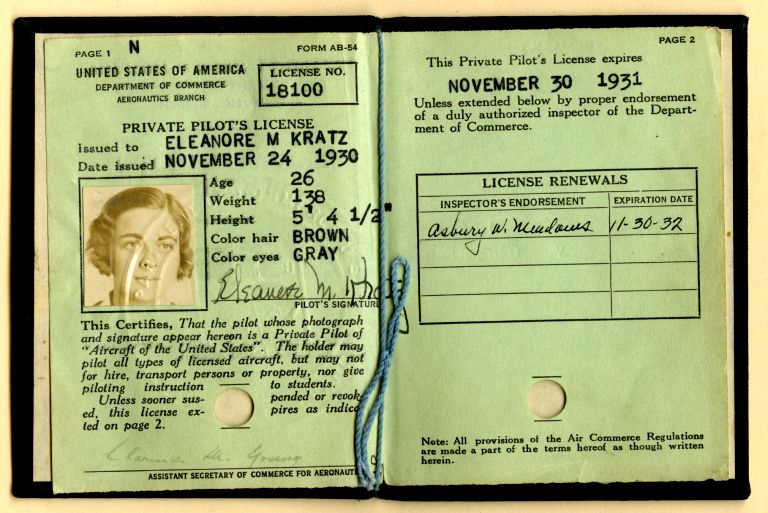 PAGE 1 N FORM AB-54
UNITED STATES OF AMERICA
DEPARTMENT OF COMMERCE
AERONAUTICS BRANCH
LICENSE NO.
18100
PRIVATE PILOT'S LICENSE
Issued to ELEANORE M KRATZ
Date issued NOVEMBER 24 1930
Age 26
Weight 138
Height 5' 4 1/2"
Color hair BROWN
Color eyes GRAY
Eleanore M. Kratz
PILOT'S SIGNATURE
This Certifies, That the pilot whose photograph
and signature appear hereon is a Private Pilot of
"Aircraft of the United States". The holder may
pilot all types of licensed aircraft, but may not
for hire, transport persons or property, nor give
piloting instruction to students.
Unless sooner sus- pended or revok
ed, this license ex- pires as indica
ted on page 2.
ASSISTANT SECRETARY OF COMMERCE FOR AERONAUT
PAGE 2
This Private Pilot's License expires
NOVEMBER 30 1931
Unless extended below by proper endorsement
of a duly authorized inspector of the Depart-
ment of Commerce.
LICENSE RENEWALS
INSPECTOR'S ENDORSEMENT EXPIRATION DATE
Asbury W. Meadows 11-30-32
Note: All provisions of the Air Commerce Regulations
are made a part of the terms hereof as though written
herein.